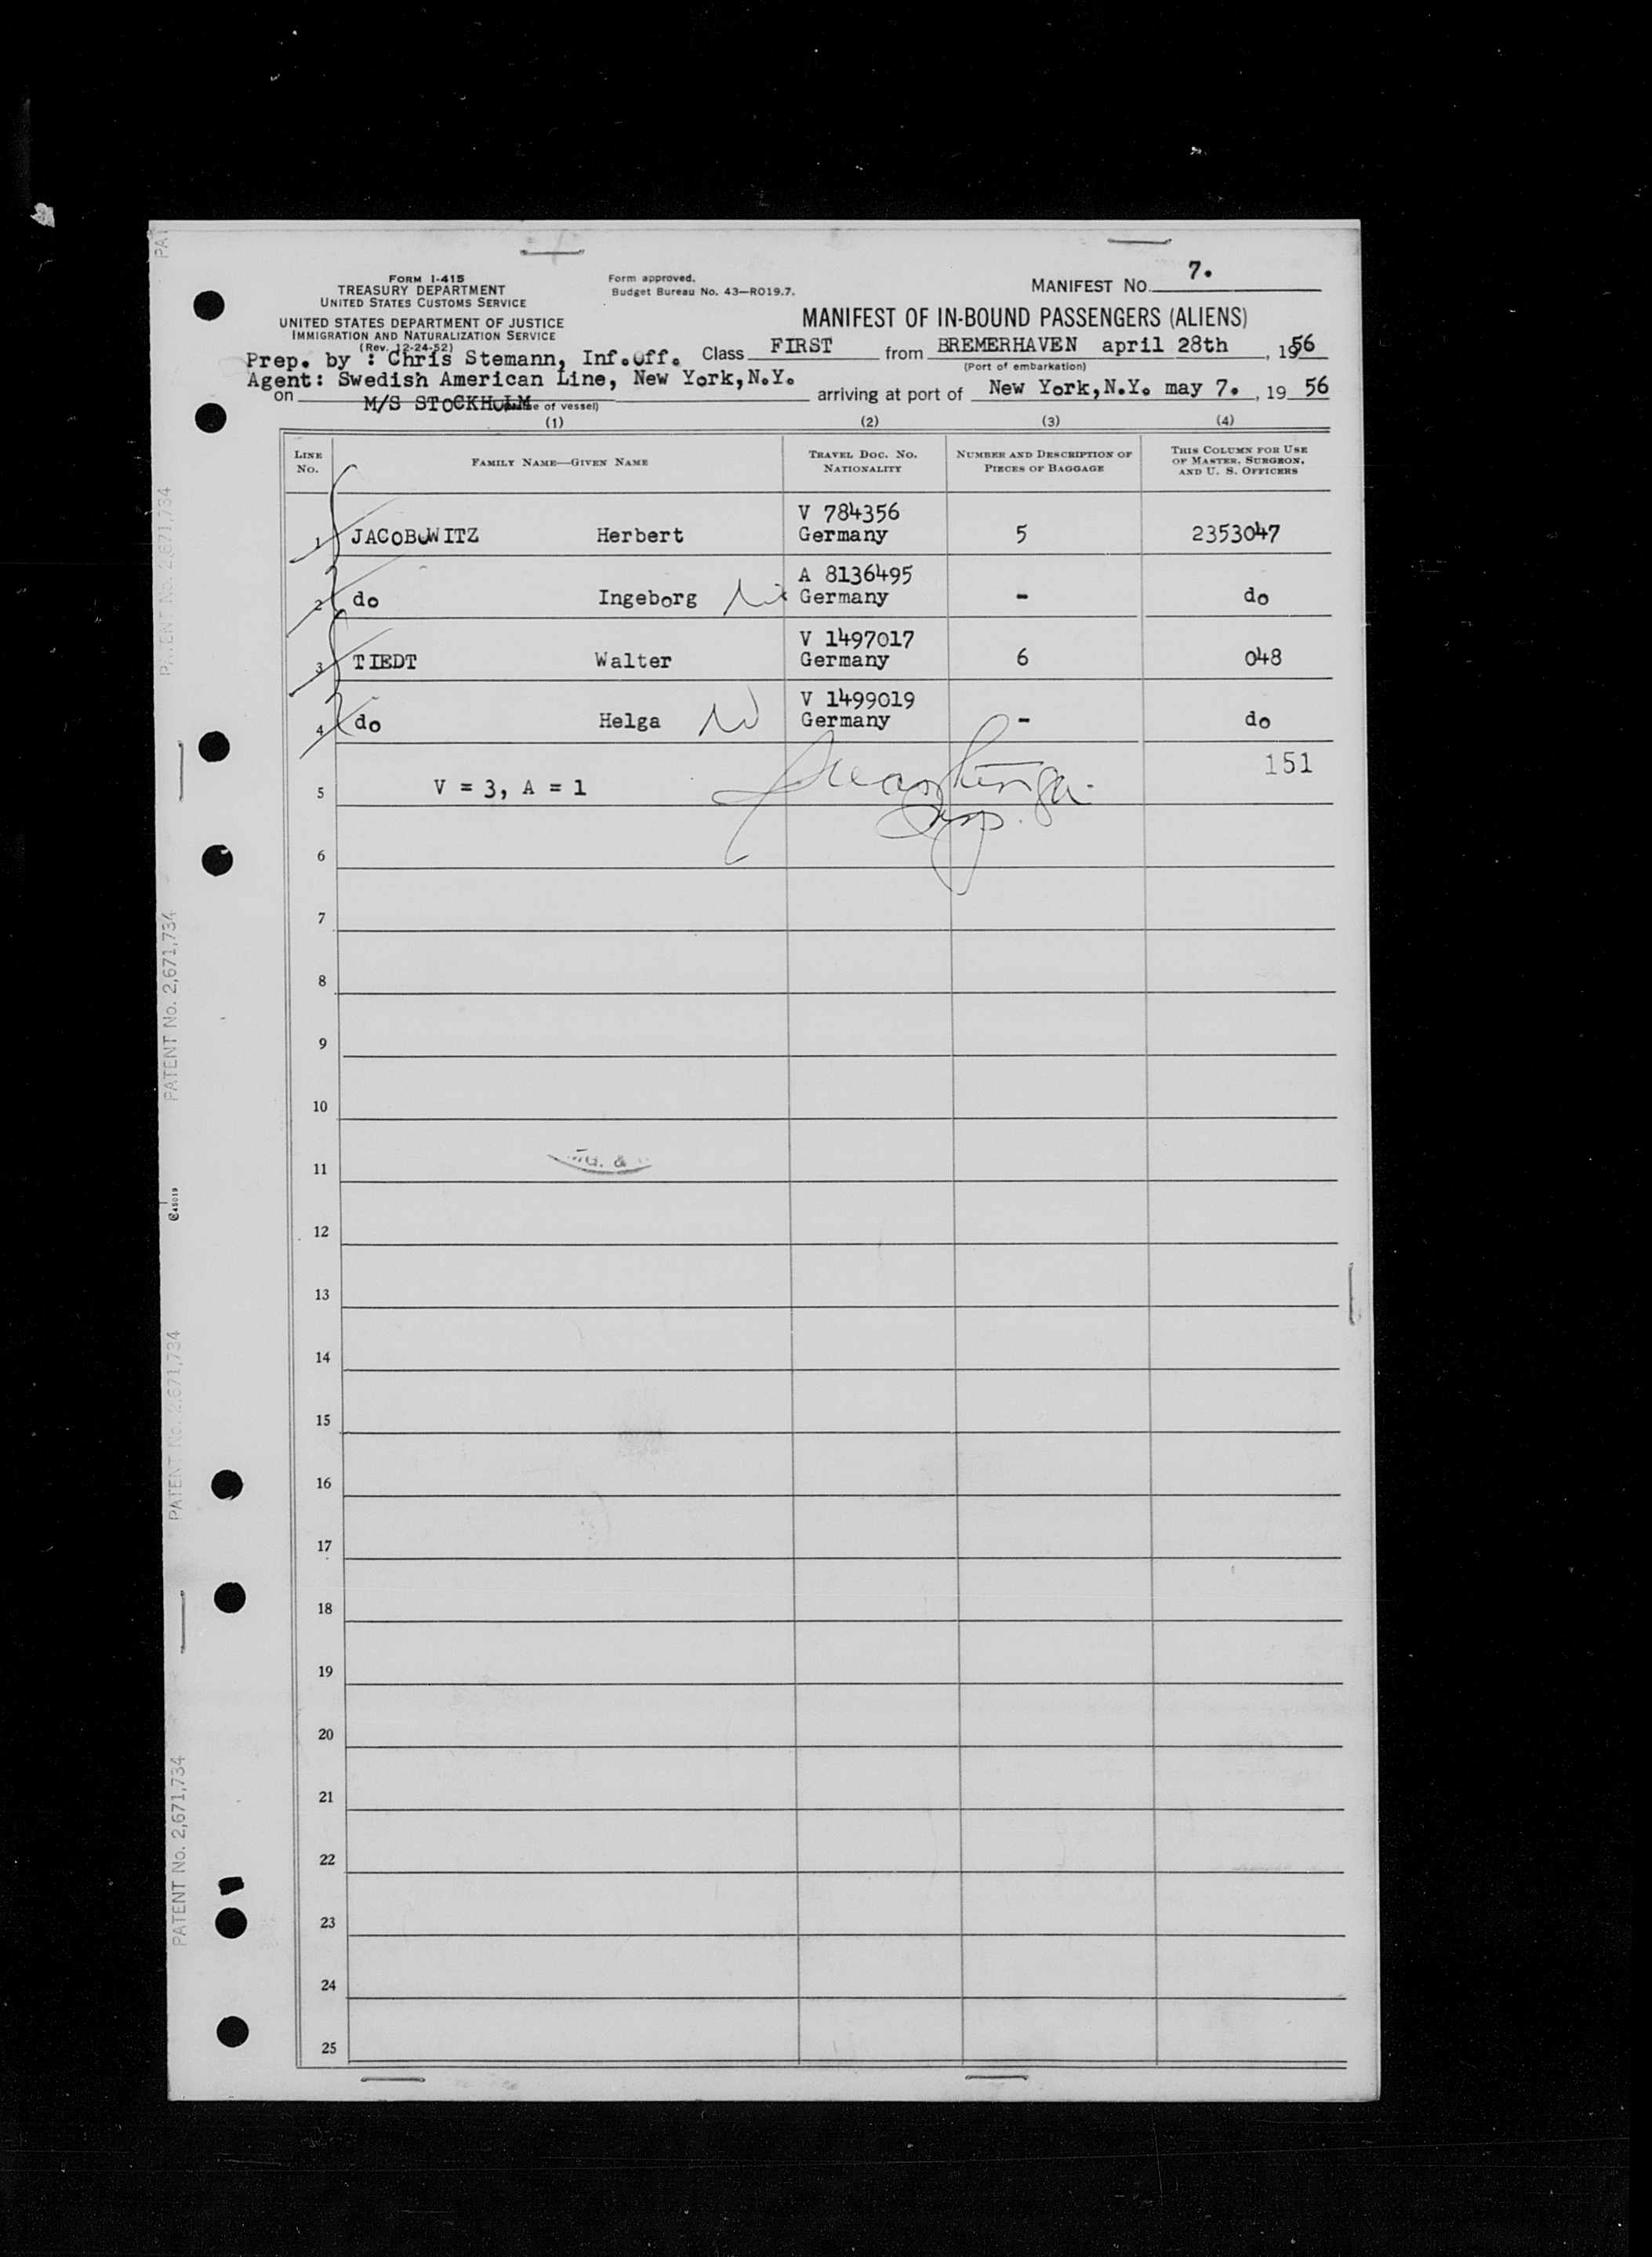 FORM I-415
TREASURY DEPARTMENT
UNITED STATES CUSTOMS SERVICE
UNITED STATES DEPARTMENT OF JUSTICE
IMMIGRATION AND NATURALIZATION SERVICE
(Rev. 12-24-52)
Form approved.
Budget Bureau No. 43—RO19.7.
MANIFEST NO. 7.
MANIFEST OF IN-BOUND PASSENGERS (ALIENS)
Prep. by : Chris Stemann, Inf.off. Class FIRST from BREMERHAVEN april 28th, 1956
(Port of embarkation)
Agent: Swedish American Line, New York,N.Y.
on M/S STOCKHOLM (Name of vessel) arriving at port of New York,N.Y. may 7., 19 56
(1) (2) (3) (4)
LINE NO. FAMILY NAME—GIVEN NAME TRAVEL DOC. NO. NATIONALITY NUMBER AND DESCRIPTION OF PIECES OF BAGGAGE THIS COLUMN FOR USE OF MASTER, SURGEON, AND U. S. OFFICERS
V 784356
1 JACOBOWITZ Herbert Germany 5 2353047
A 8136495
2 do Ingeborg Germany - do
V 1497017
3 TIEDT Walter Germany 6 048
V 1499019
4 do Helga Germany - do
151
5 V = 3, A = 1
6
7
8
9
10
11
12
13
14
15
16
17
18
19
20
21
22
23
24
25
PATENT No. 2,671,734
PATENT No. 2,671,734
PATENT No. 2,671,734
PATENT No. 2,671,734